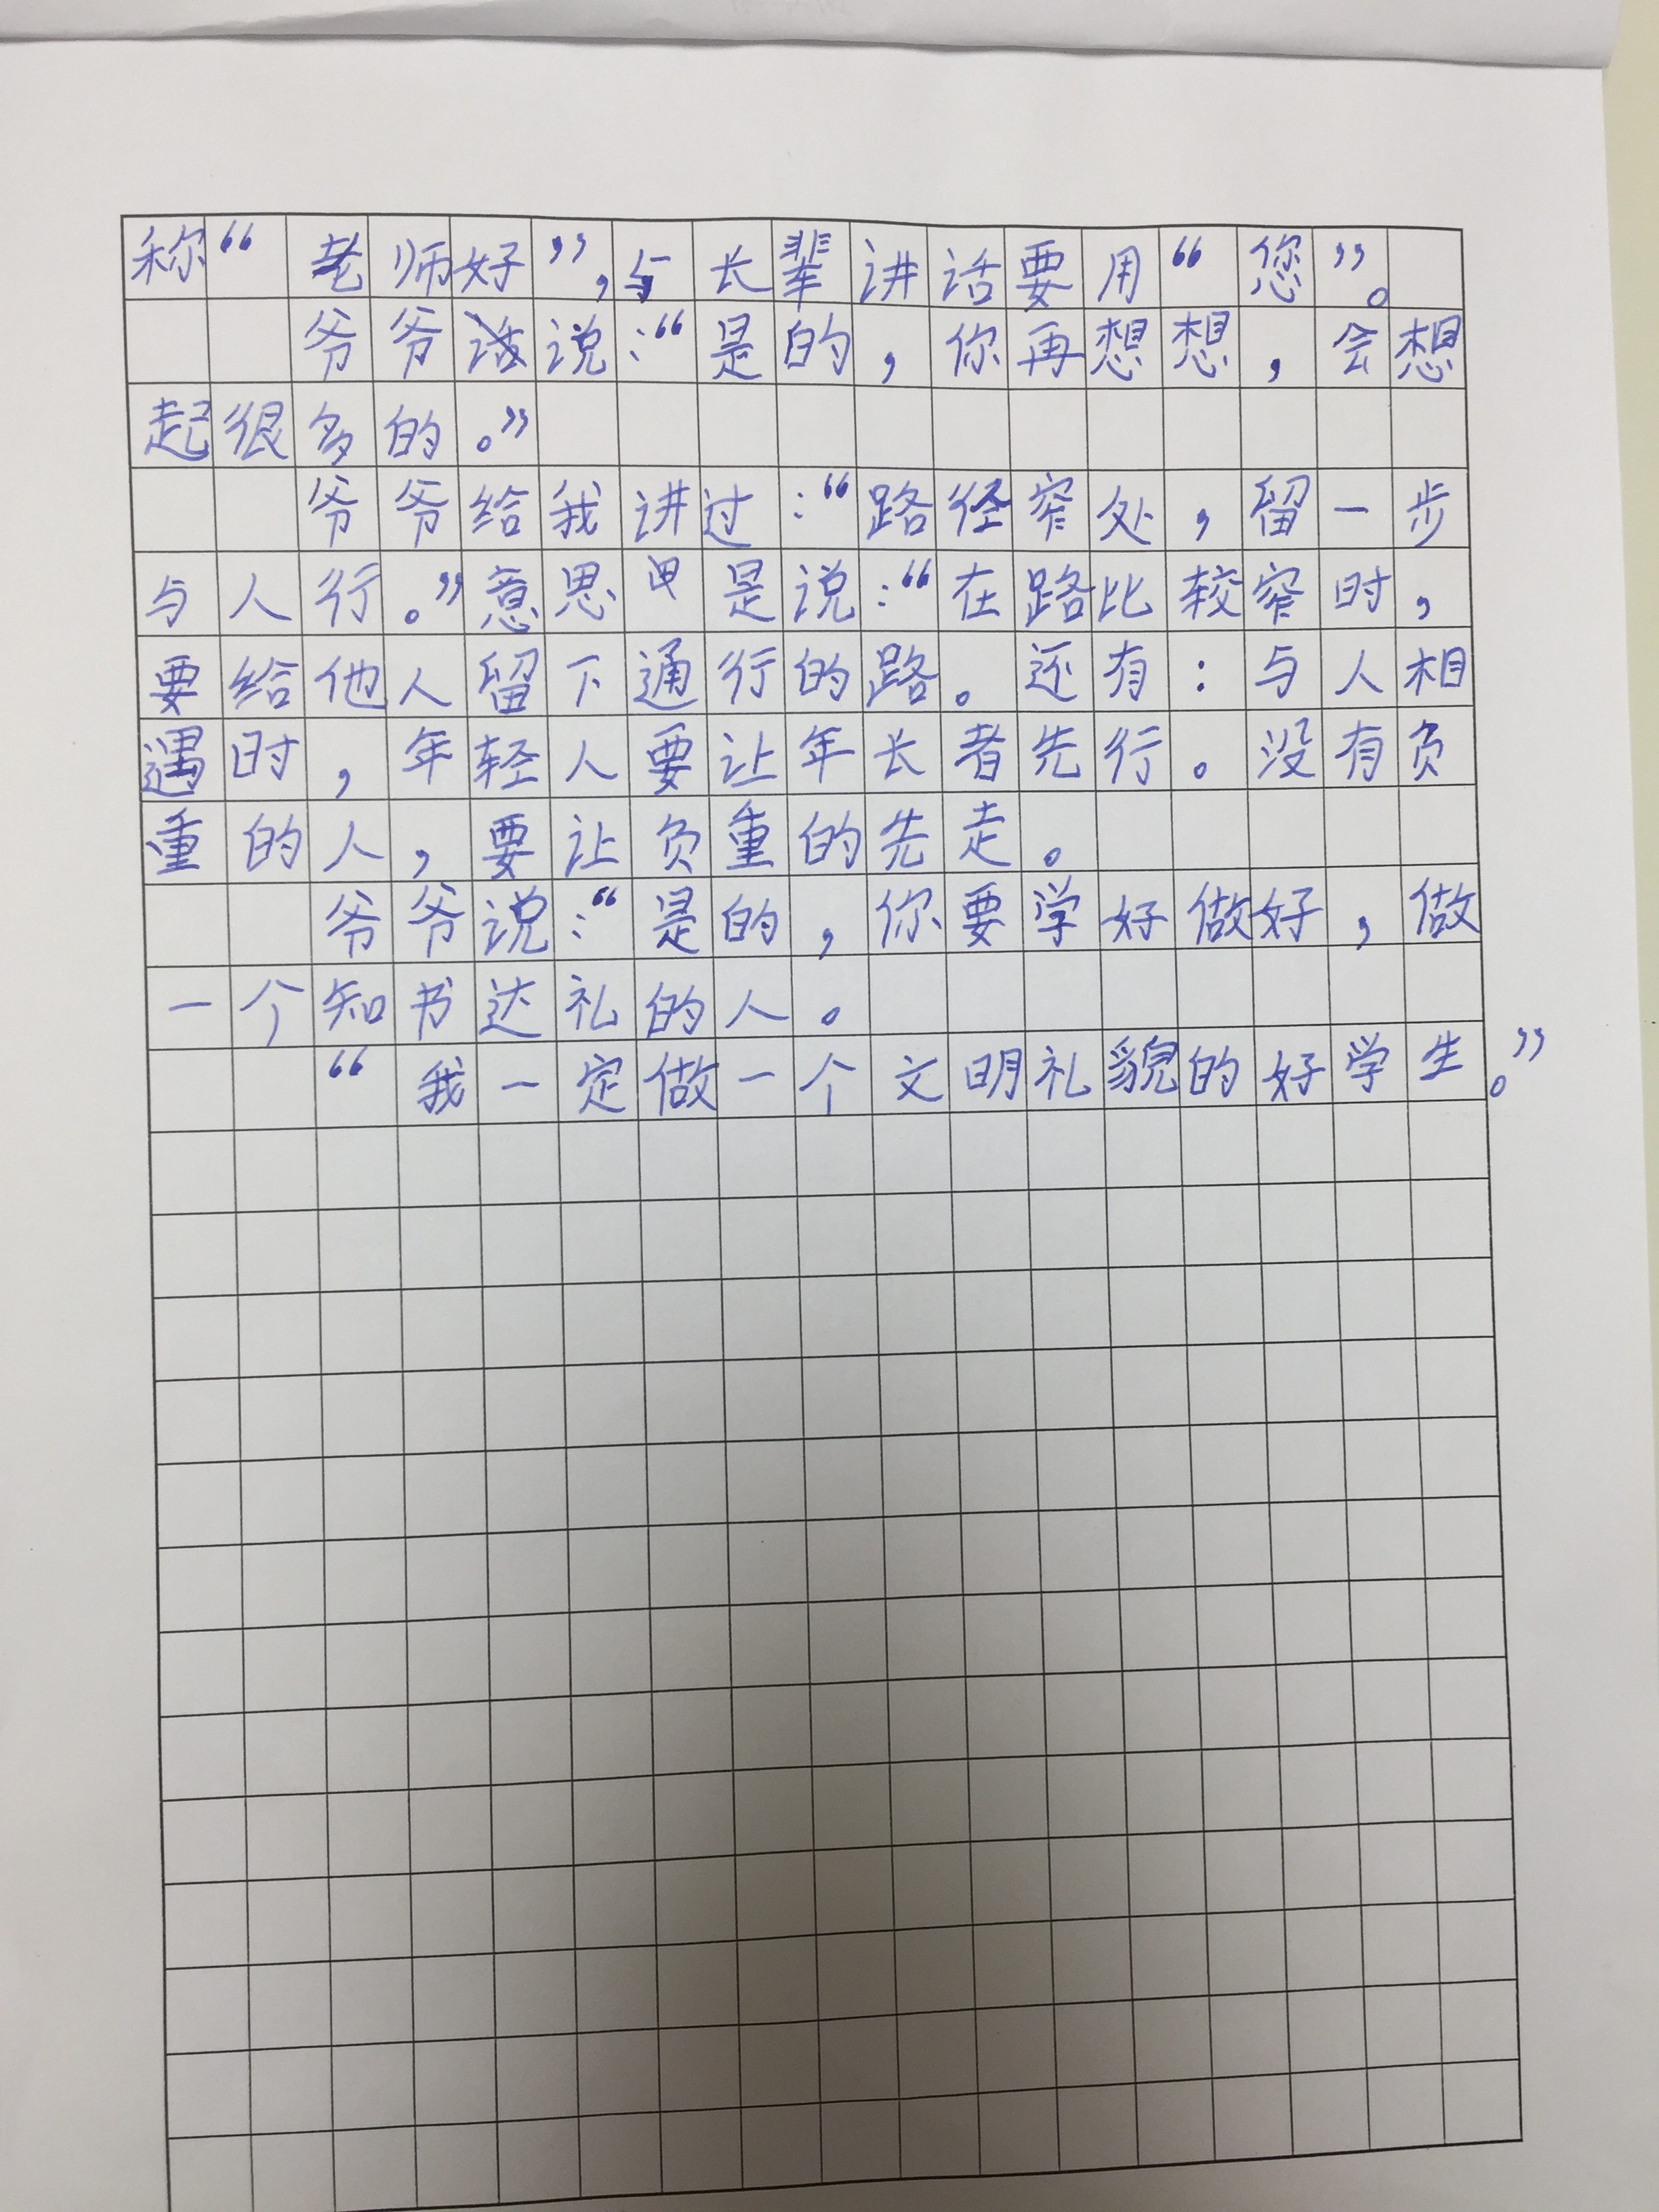 称“老师好”,与长辈讲话要用“您”。
爷爷说:“是的,你再想想,会想
起很多的。”
爷爷给我讲过:“路径窄处,留一步
与人行。”意思是说:“在路比较窄时,
要给他人留下通行的路。还有:与人相
遇时,年轻人要让年长者先行。没有负
重的人,要让负重的先走。
爷爷说:“是的,你要学好做好,做
一个知书达礼的人。
“我一定做一个文明礼貌的好学生。”